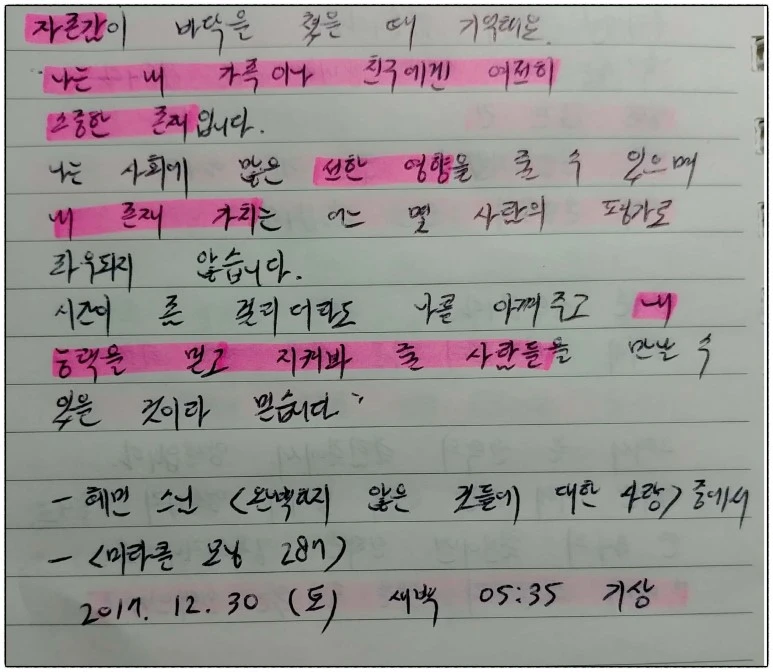 자존감이 바닥을 쳤을 때 기억해요.
나는 내 가족이나 친구에겐 여전히
소중한 존재입니다.
나는 사회에 많은 선한 영향을 줄 수 있으며
내 존재 가치는 어느 몇 사람의 평가로
좌우되지 않습니다.
시간이 좀 걸리더라도 나를 아껴주고 내
능력을 믿고 지켜봐 줄 사람들을 만날 수
있을 것이라 믿습니다."
- 혜민 스님 <완벽하지 않은 것들에 대한 사랑> 중에서
- <미라클 모닝 28기>
2017. 12. 30 (토) 새벽 05:35 기상